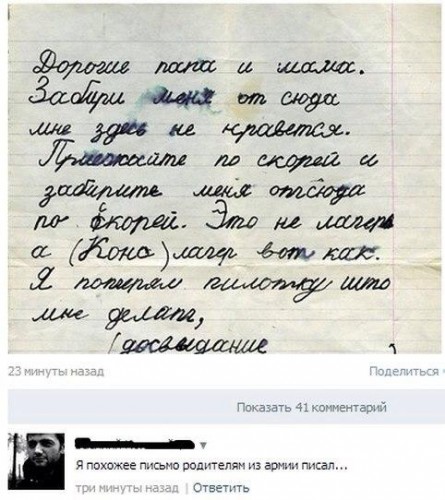 Дорогие папа и мама.
Забири меня от сюда
мне здесь не нравется.
Приезжайте по скорей и
забирите меня отсюда
по скорей. Это не лагерь
а (Конс) лагер вот как.
Я потерям пилотку што
мне делать,
(досвидание
23 минуты назад
Поделиться
Показать 41 комментарий
Я похожее письмо родителям из армии писал...
три минуты назад | Ответить